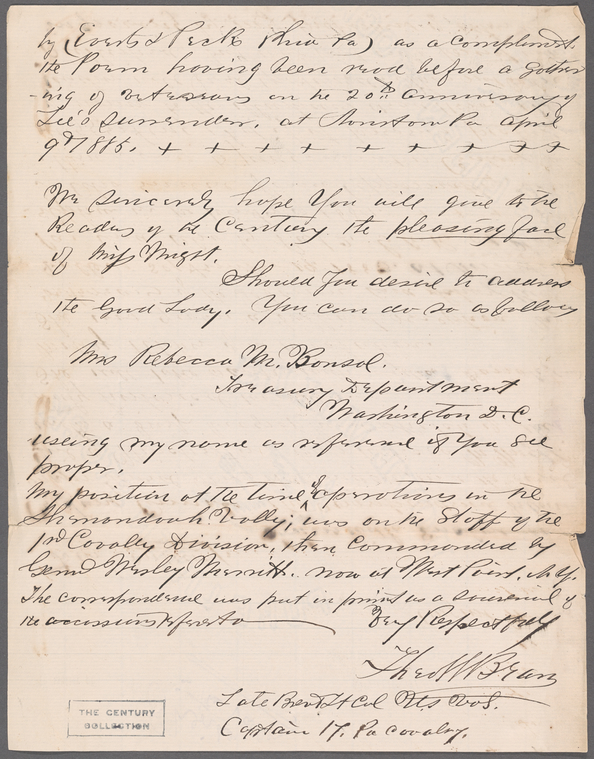 by (Everts & Peck Phia Pa) as a compliment.
the Poem having been read before a gather
-ing of veterans on the 20th anniversary of
Lee's Surrender, at Norristown Pa April
9th 1885. + + + + + + + +
We sincerely hope You will give to the
Readers of the Century the pleasing face
of Miss Wright.
Should You desire to address
the Good Lady. You can do so as follows
Mrs Rebecca M. Bonsal.
Treasury Department
Washington D.C.
useing my name as reference if You see
proper.
My position at the time of operations in the
Shenandoah Valley, was on the Staff of the
1st Cavalry Division, then commanded by
Genl Wesley Merritt. now at West Point, N.Y.
The correspondence was put in print as a souvenir of
the occasion refered to
Very Respectfully
Theo W Bean
Late Brevt Lt Col U.S. Vols.
Captain 17. Pa Cavalry.
THE CENTURY
COLLECTION